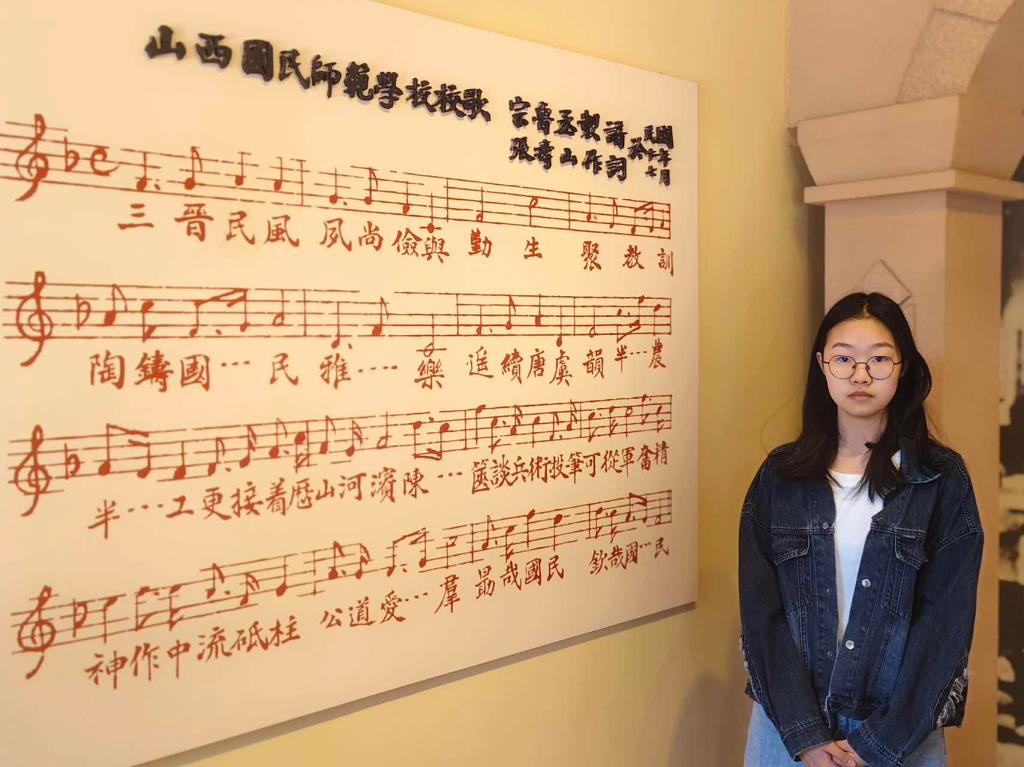 山西國民師範學校校歌
宗魯丞製譜
張秀山作詞
民國
七年
七月
三晉民風夙尚儉與勤生聚教訓
陶鑄國…民雅….樂遥續唐虞韻半…農
半…工更接着歷山河濱陳…篋談兵術投筆可從軍奮精
神作中流砥柱公道愛…羣勗哉國民欽哉國…民